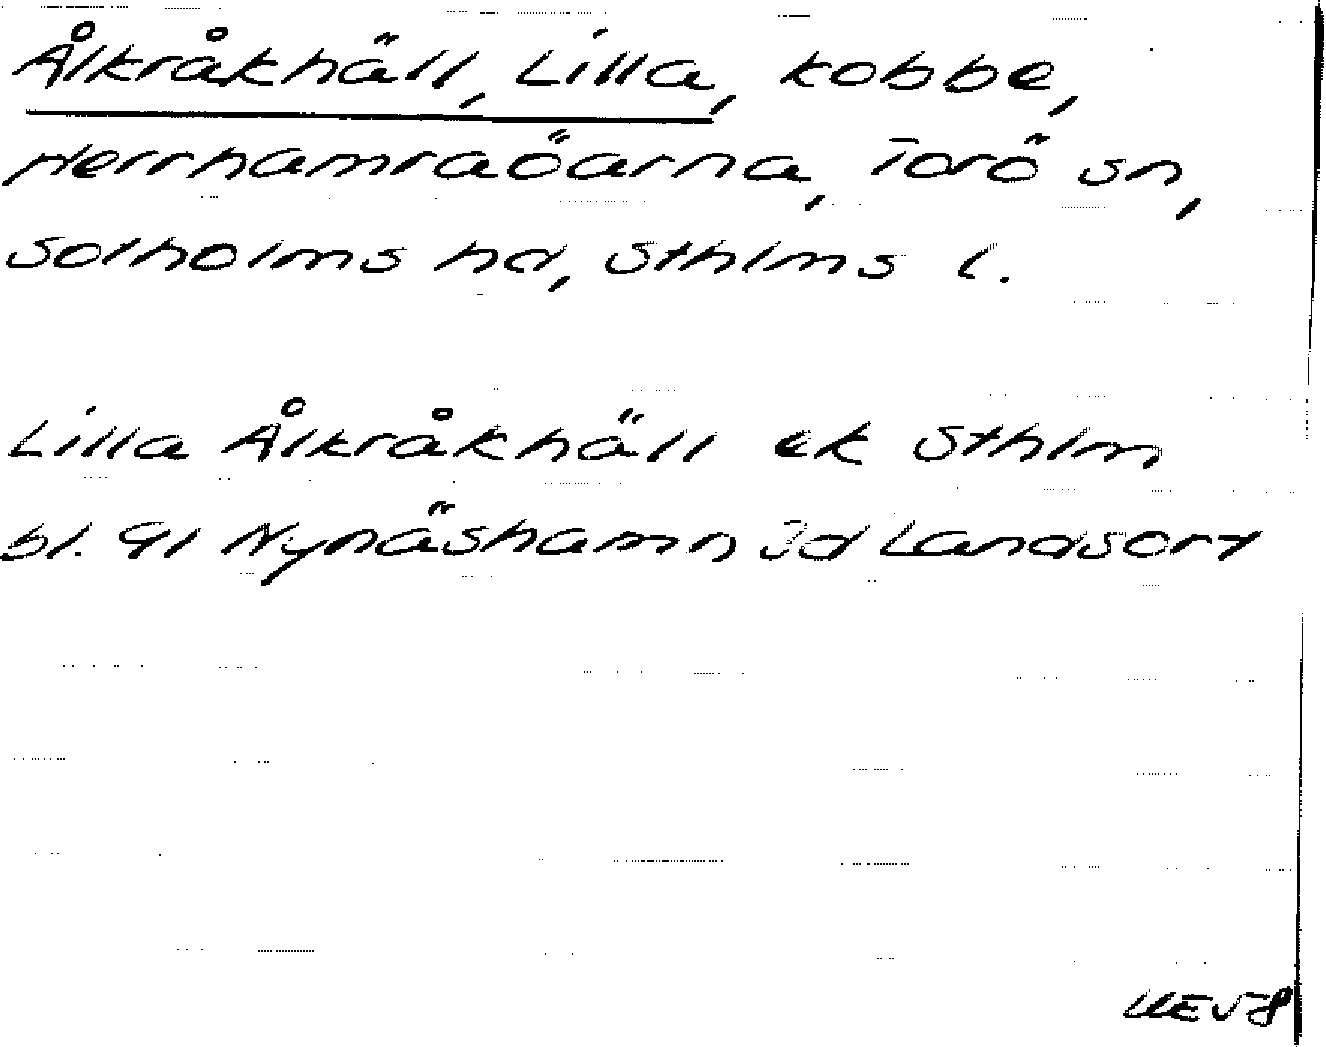 Ålkråkhäll, Lilla, kobbe,
Herrhamraöarna, Torö sn,
Solholms hd, Sthlms l.
Lilla Ålkråkhäll ek Sthlm
bl. 91 Nynäshamn Jd Landsort